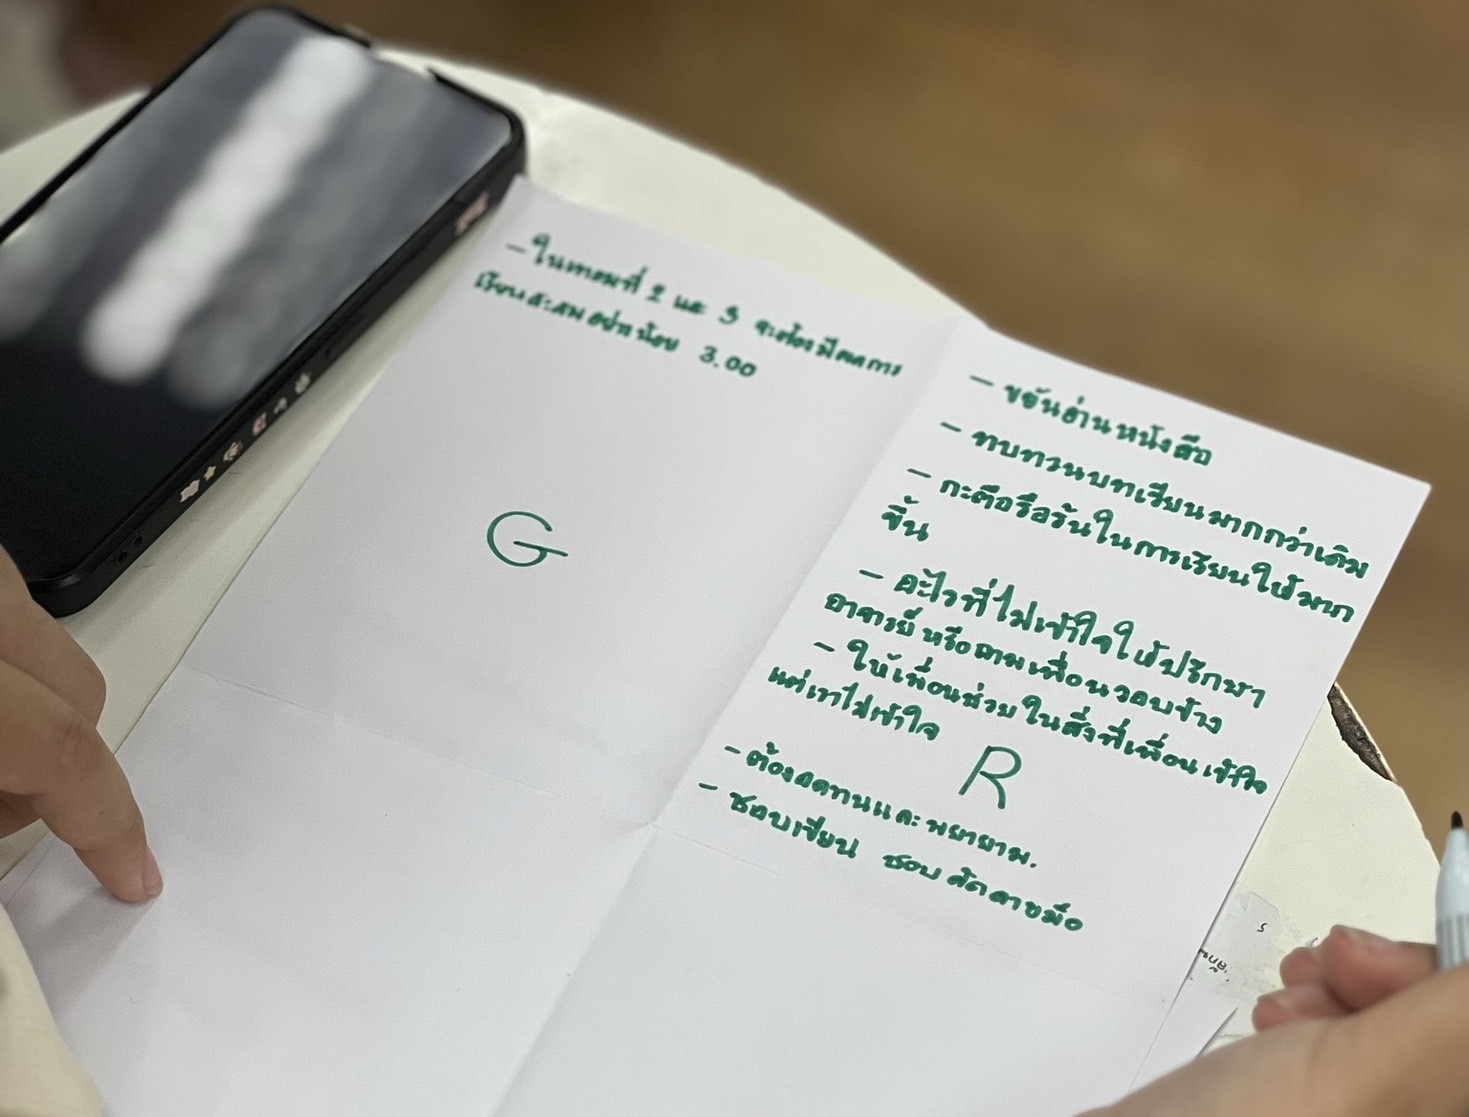 - ในเทอมที่ 2 และ 3 จะต้องมีผลการ
เรียนสะสมอย่างน้อย 3.00
G
- ขยันอ่านหนังสือ
- ทบทวนบทเรียนมากกว่าเดิม
- กะตือรือร้นในการเรียนให้มาก
ขึ้น
- อะไรที่ไม่เข้าใจให้ปรึกษา
อาจารย์ หรือถามเพื่อนรอบข้าง
- ให้เพื่อนช่วยในสิ่งที่เพื่อนเข้าใจ
แต่เราไม่เข้าใจ
R
- ต้องอดทนและพยายาม.
- ชอบเขียน ชอบคัดลายมือ